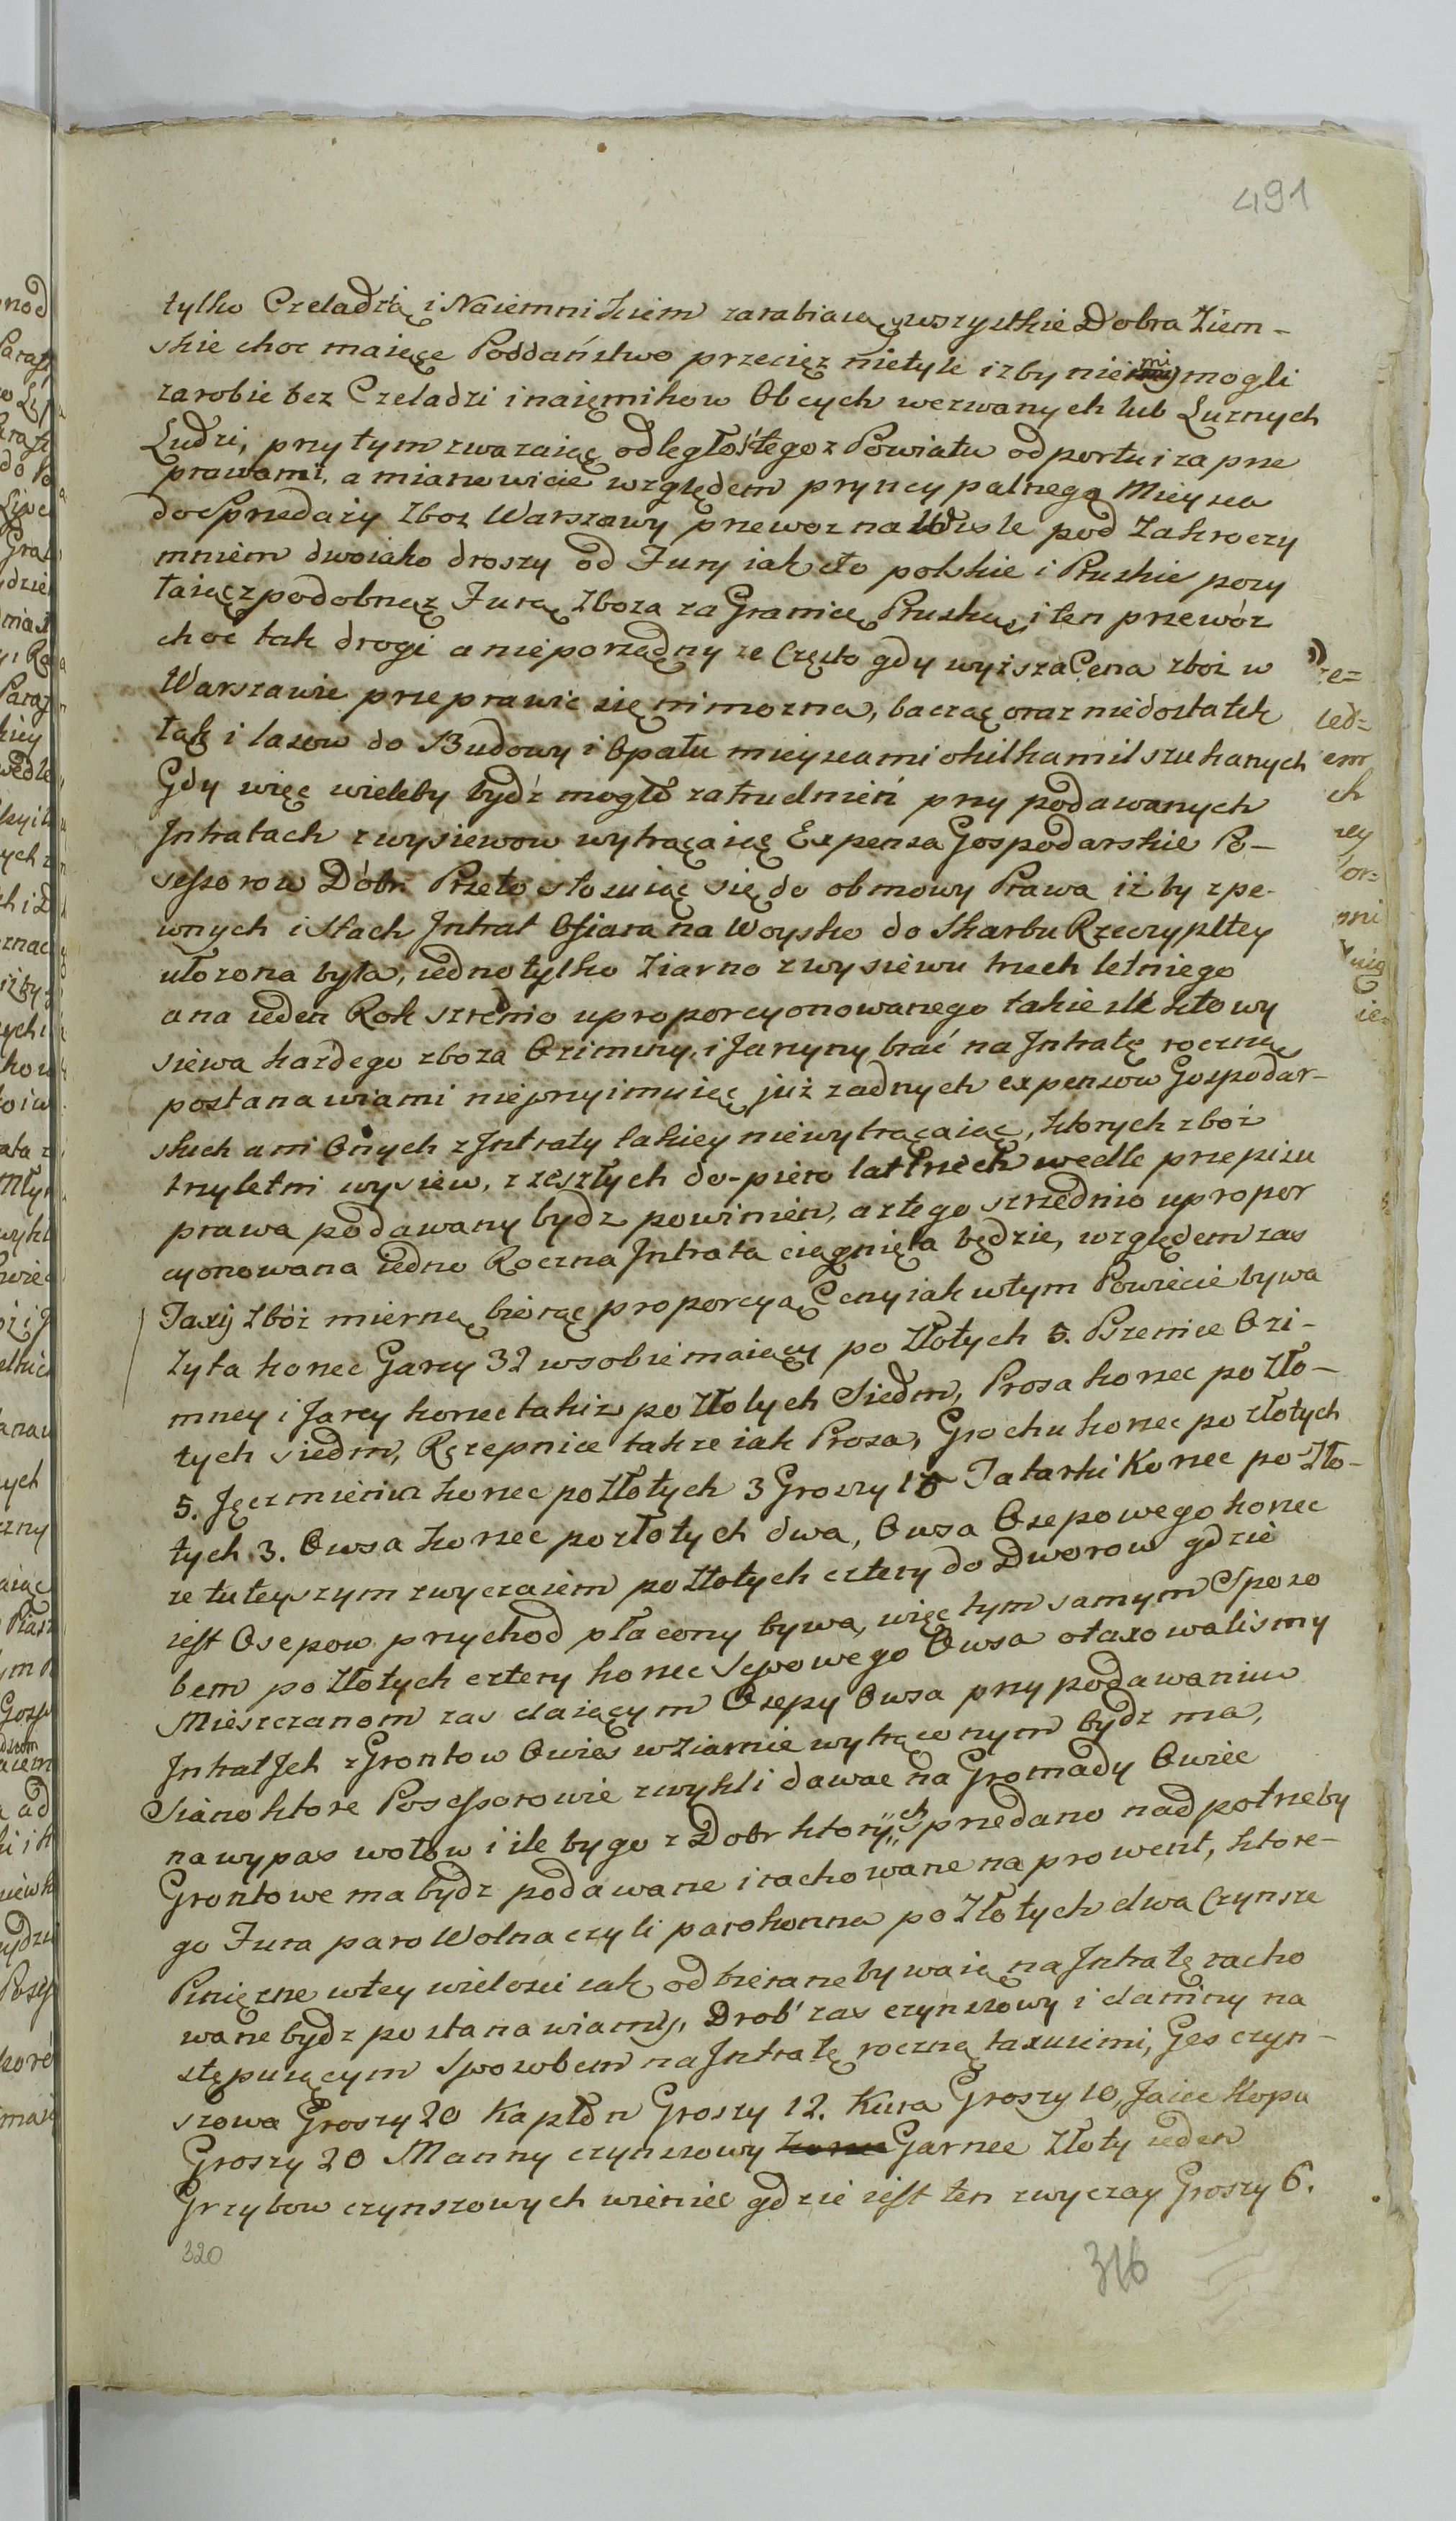 491
tylko Czeladzią i Naiemnikiem zarabiaią wszystkie Dobra Ziem-
skie choc maiące Poddaństwo przecięz nietyle izby niemi mogli
zarobic bez Czeladzi i naięmikow Obcych wezwanych lub Luznych
Ludzi, przytym zwazaiąc odległość tegoz Powiatu od portu i za prze
prawami, a mianowicie względem pryncypalnego Mieysca
do Sprzedaży Zboz Warszawy przewoz na Wisle pod Zakroczy
mniem dwoiako droszy od Fury iak cło polskie i Pruskie pozy
taiąc z podobneż Furą Zboza za Granicę Pruską, i ten przewóz
choc tak drogi a nieporządny ze Często gdy wyższa Cena zboż w
Warszawie przeprawic się nimozna, bacząc oraz niedostatek
łąk i lasow do Budowy i Opału mieyscami okilkamil szukanych
Gdy więc wieleby bydź mogło zatrudnień przy podawanych
Intratach z wysiewow wytrącaiąc Expensa Gospodarskie Po-
sessorow Dóbr. Przeto stosuiąc się do obmowy Prawa iż by z pe-
wnych i Stałych Intrat Ofiara na Woysko do Skarbu Rzeczypltey
ułozona była, iedno tylko Ziarno z wysiewu trzech letniego
a na ieden Rok szrednio uproporcyonowanego takie ile kto wy
siewa każdego zboza Oziminy, i Jarzyny brać na Intratę roczną
postanawiami nieprzyimuiąc już zadnych expensow Gospodar-
skich ani Onych z Intraty takiey niewytrącaiąc, ktorych zboż
trzyletni wysiew, z zeszłych do-piero lat trzech wedle przepisu
prawa podawany bydz powinien, a z tego szrzednio upropor
cyonowana iedno Roczna Intrata ciągnięta będzie, względem zas
Taxij zbóż mierną biorąc proporcyą Ceny iak w tym Powiecie bywa
Zyta korzec Garcy 32 w sobie maiący po Złotych 5. Pszenice Ozi-
mney i Jarey korzec takiz po Złotych Siedm, Prosa korzec po Zło-
tych siedm, Rzepnice takze iak Prosa, Grochu korzec po złotych
5. Jęczmienia korzec po Złotych 3 Groszy 15 Tatarki Korzec po Zło-
tych 3. Owsa korzec po złotych dwa, Owsa Osepowego korzec
ze tuteyszym zwyczaiem po Złotych cztery do Dworow gdzie
iest Osepow przychod płacony bywa, więc tym samym Sposo
bem po Złotych cztery korzec Sepowego Owsa otaxowalismy
Mieszczanom zas daiącym Osepy Owsa przy podawaniu
Intrat Jch z Grontow Owies w Ziarnie wytrąconym bydz ma,
Siano ktore Possessorowie zwykli dawac na Gromady Owiec
na wypas wołow i ile by go z Dobr ktorych przedano nad potrzeby
Grontowe ma bydz podawane i rachowane na prowent, ktore-
go Fura paro Wolna czyli parokonna po Złotych dwa Czynsze
Pinięzne w tey wielosci iak odbierane bywaią na Intratę racho
wane bydz postanawiamy, Drob' zas czynszowy i daniny na
stępuiącym Sposobem na Intratę roczną taxuiemi, Ges czyn-
szowa Groszy 20 Kapłon Groszy 12. Kura Groszy 10, Jaiec Kopa
Groszy 20 Manny czynszowy Garnec Złoty ieden
Grzybow czynszowych wieniec gdzie iest ten zwyczay Groszy 6.
320
316